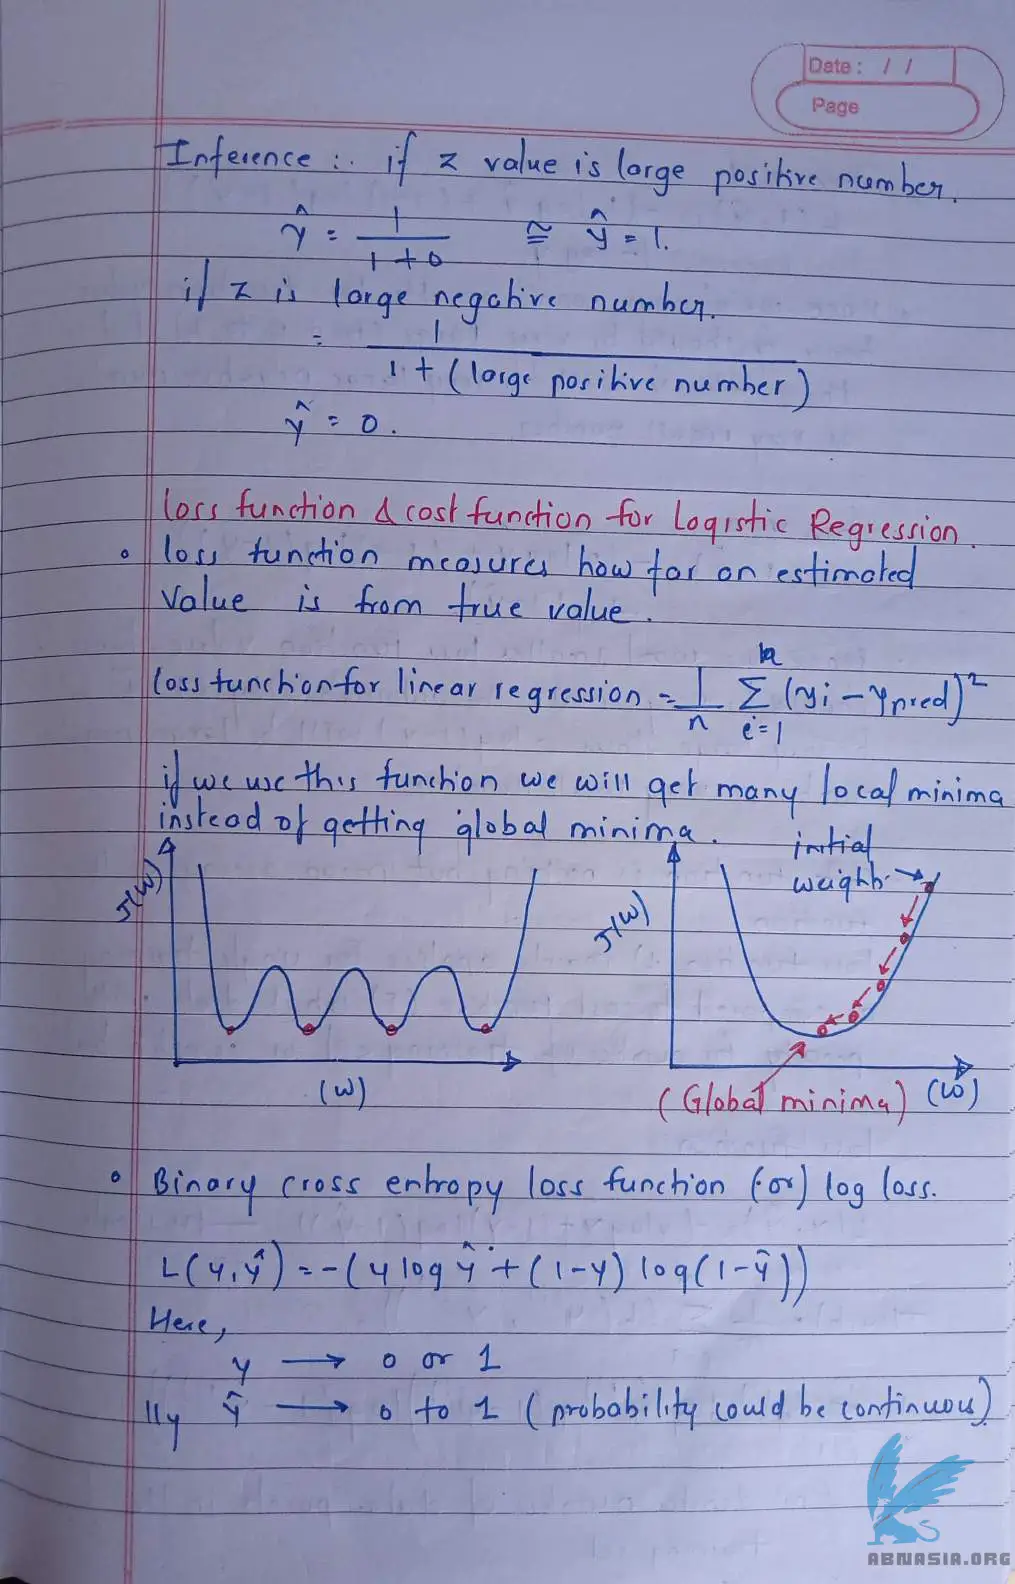 Date : / /
Page
Inference :. if z value is large positive number.
ŷ = 1/(1+0) ≅ ŷ = 1.
if z is large negative number.
= 1/(1+(large positive number))
ŷ = 0.
loss function & cost function for Logistic Regression.
• loss function measures how far an estimated
value is from true value.
loss function for linear regression = 1/n Σ i=1 n (yi - ypred)²
if we use this function we will get many local minima
instead of getting global minima.
initial
weights
J(w)
J(w)
(w)
(Global minima) (w)
• Binary cross entropy loss function (or) log loss.
L(y,ŷ) = -(y log ŷ + (1-y) log(1-ŷ))
Here,
y → 0 or 1
llly ŷ → 0 to 1 (probability could be continuous)
ABNASIA.ORG